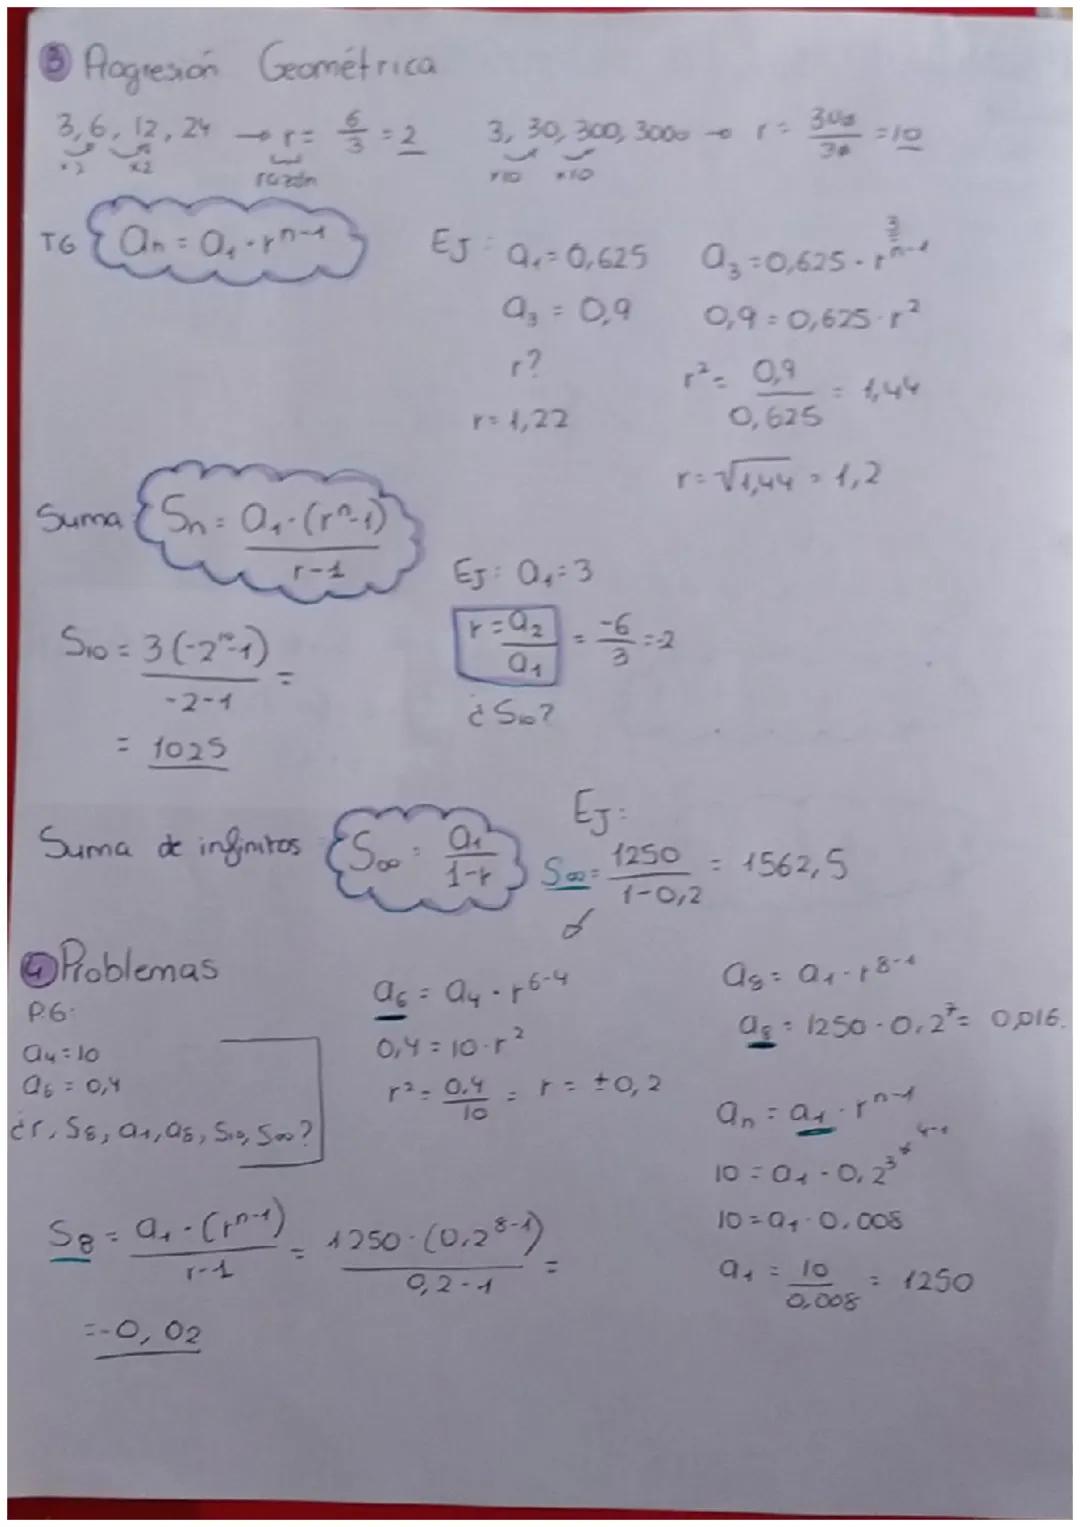 ③ Progresión Geométrica
3, 6, 12, 24 → r = 6/3 = 2
x2 x2
razón
3, 30, 300, 3000 → r = 300/30 = 10
x10 x10
TG
an = a₁ · rⁿ⁻¹
EJ: a₁ = 0,625
a₃ = 0,9
r?
r = 1,22
a₃ = 0,625 · rⁿ⁻¹
3
0,9 = 0,625 · r²
r² = 0,9/0,625 = 1,44
r = √1,44 = 1,2
Suma Sn = a₁ · (rⁿ-1)/r-1
EJ: a₁ = 3
r = a₂/a₁ = -6/3 = -2
¿S₁₀?
S₁₀ = 3(-2¹⁰-1)/-2-1 =
= 1025
Suma de infinitos S∞ = a₁/1-r
EJ:
S∞ = 1250/1-0,2 = 1562,5
④ Problemas
P.G:
a₄ = 10
a₆ = 0,4
¿r, S₈, a₁, a₈, S₁₀, S∞?
a₆ = a₄ · r⁶⁻⁴
0,4 = 10 · r²
r² = 0,4/10 = r = ±0,2
a₈ = a₁ · r⁸⁻¹
a₈ = 1250 · 0,2⁷ = 0,016.
an = a₁ · rⁿ⁻¹
4-1
10 = a₁ · 0,2³
10 = a₁ · 0,008
a₁ = 10/0,008 = 1250
S₈ = a₁ · (rⁿ⁻¹)/r-1 = 1250 · (0,2⁸⁻¹)/0,2-1 =
= -0,02